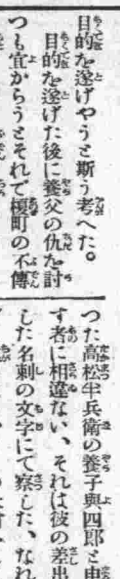 目的を遂げやうと斯う考へた。
目的を遂げた後に養父の仇を討
つも宜からうとそれで榎町の不傳
つた高松半兵衛の養子與四郎と申
す者に相違ない、それは彼の差出
した名刺の文字にて察した、なれ